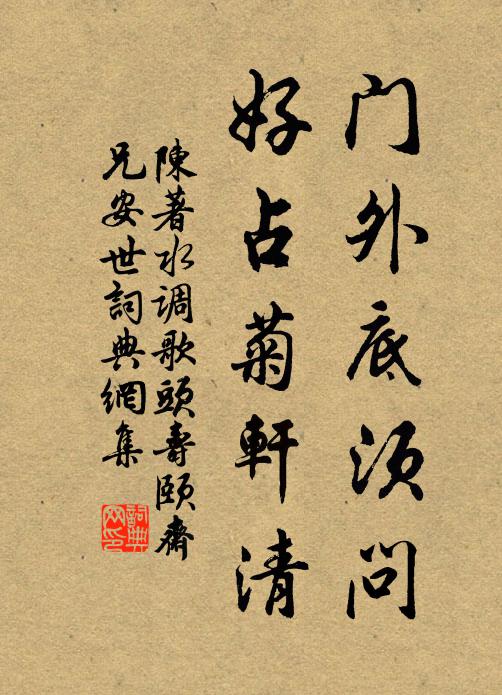 门外底须问
好占菊軒清
陳著水调歌頭壽颐齋
兄安世詞典網集
詞典网印